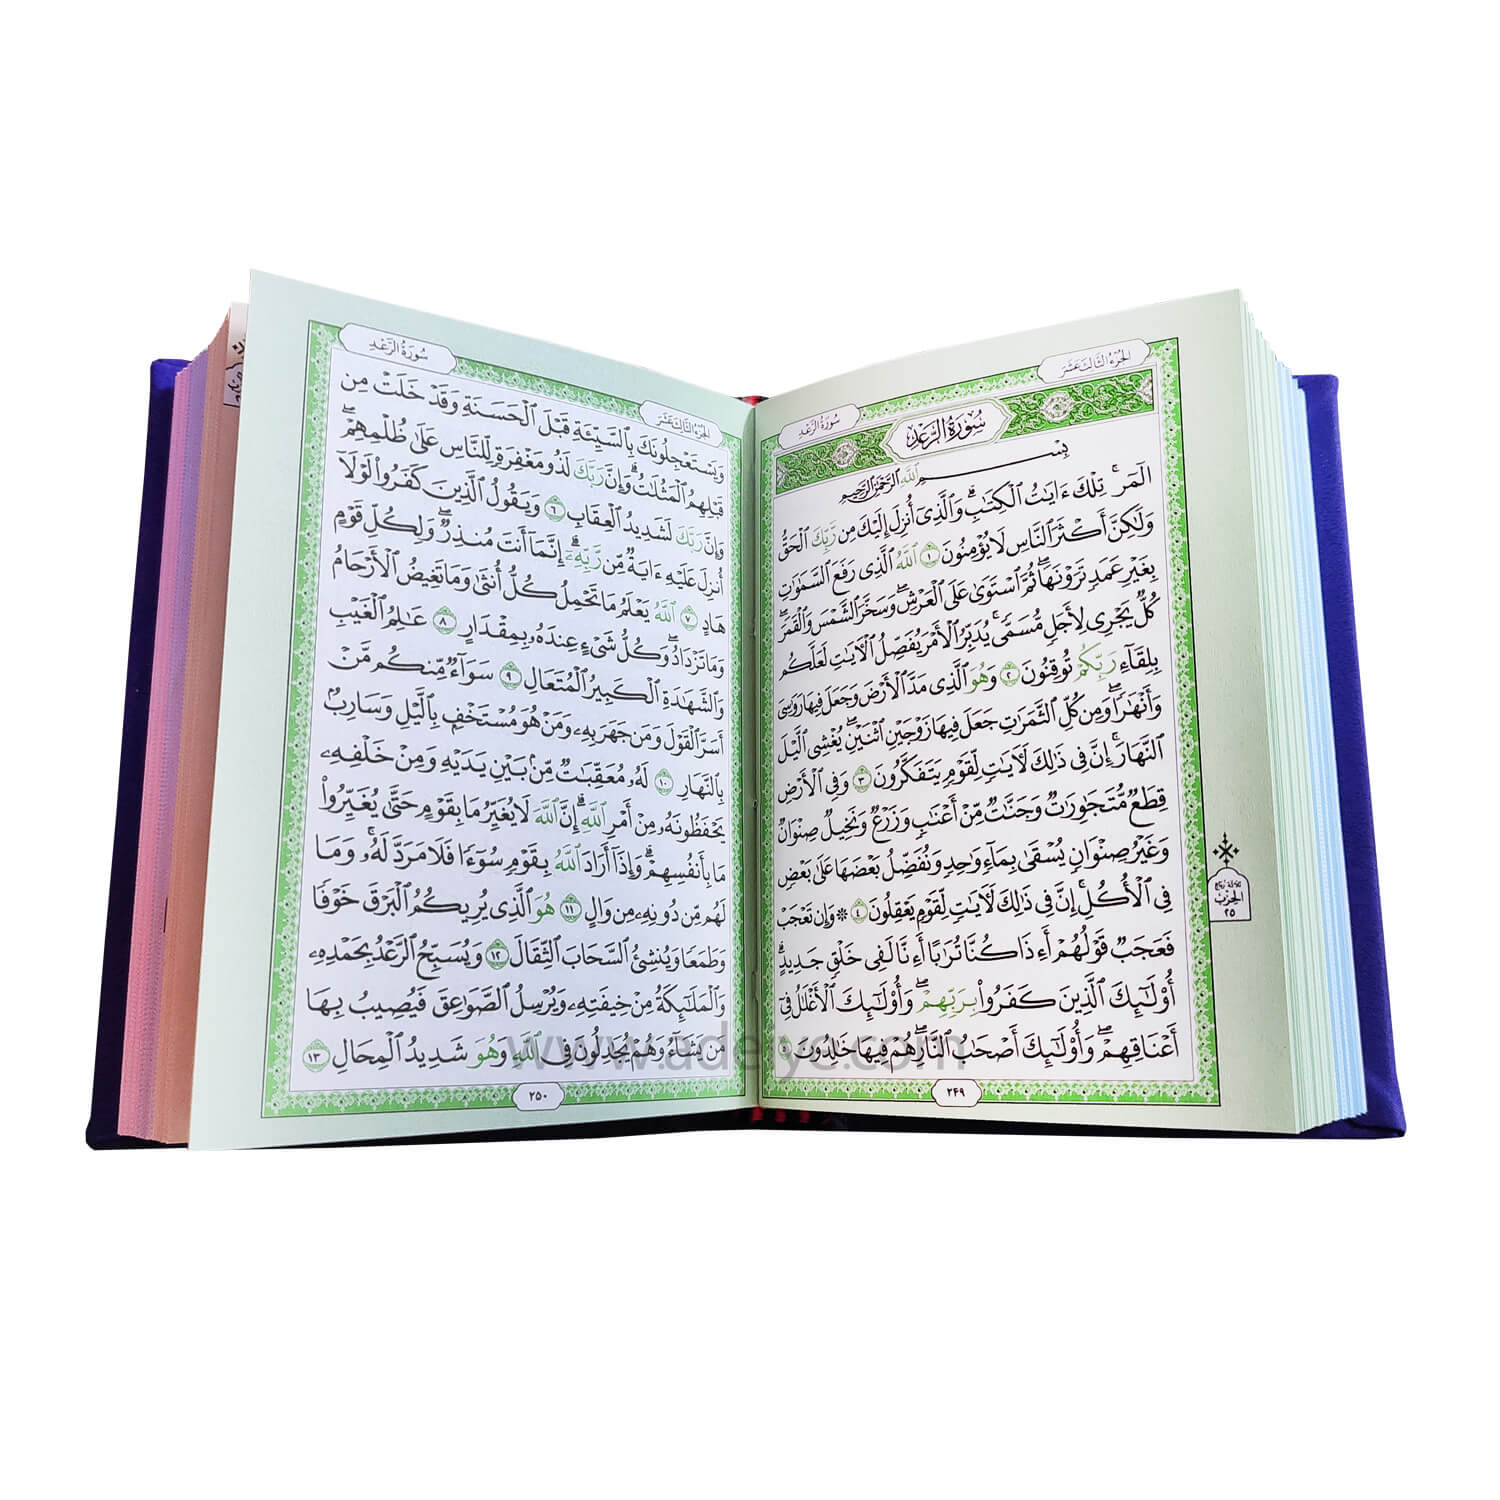 الجُزءُ الثّالِثَ عَشَرَ
سُورَةُ الرَّعْدِ
سُورَةُ الرَّعْدِ
بِسْمِ ٱللَّهِ ٱلرَّحْمَٰنِ ٱلرَّحِيمِ
الٓمٓر ۚ تِلْكَ ءَايَٰتُ ٱلْكِتَٰبِ ۗ وَٱلَّذِىٓ أُنزِلَ إِلَيْكَ مِن رَّبِّكَ ٱلْحَقُّ
وَلَٰكِنَّ أَكْثَرَ ٱلنَّاسِ لَا يُؤْمِنُونَ ١ ٱللَّهُ ٱلَّذِى رَفَعَ ٱلسَّمَٰوَٰتِ
بِغَيْرِ عَمَدٍ تَرَوْنَهَا ۖ ثُمَّ ٱسْتَوَىٰ عَلَى ٱلْعَرْشِ ۖ وَسَخَّرَ ٱلشَّمْسَ وَٱلْقَمَرَ ۖ
كُلٌّ يَجْرِى لِأَجَلٍ مُّسَمًّى ۚ يُدَبِّرُ ٱلْأَمْرَ يُفَصِّلُ ٱلْءَايَٰتِ لَعَلَّكُم
بِلِقَآءِ رَبِّكُمْ تُوقِنُونَ ٢ وَهُوَ ٱلَّذِى مَدَّ ٱلْأَرْضَ وَجَعَلَ فِيهَا رَوَٰسِىَ
وَأَنْهَٰرًا ۖ وَمِن كُلِّ ٱلثَّمَرَٰتِ جَعَلَ فِيهَا زَوْجَيْنِ ٱثْنَيْنِ ۖ يُغْشِى ٱلَّيْلَ
ٱلنَّهَارَ ۚ إِنَّ فِى ذَٰلِكَ لَءَايَٰتٍ لِّقَوْمٍ يَتَفَكَّرُونَ ٣ وَفِى ٱلْأَرْضِ
قِطَعٌ مُّتَجَٰوِرَٰتٌ وَجَنَّٰتٌ مِّنْ أَعْنَٰبٍ وَزَرْعٌ وَنَخِيلٌ صِنْوَانٌ
وَغَيْرُ صِنْوَانٍ يُسْقَىٰ بِمَآءٍ وَٰحِدٍ وَنُفَضِّلُ بَعْضَهَا عَلَىٰ بَعْضٍ
فِى ٱلْأُكُلِ ۚ إِنَّ فِى ذَٰلِكَ لَءَايَٰتٍ لِّقَوْمٍ يَعْقِلُونَ ٤ ۞ وَإِن تَعْجَبْ
فَعَجَبٌ قَوْلُهُمْ أَءِذَا كُنَّا تُرَٰبًا أَءِنَّا لَفِى خَلْقٍ جَدِيدٍ ۗ
أُو۟لَٰٓئِكَ ٱلَّذِينَ كَفَرُوا۟ بِرَبِّهِمْ ۖ وَأُو۟لَٰٓئِكَ ٱلْأَغْلَٰلُ فِىٓ
أَعْنَاقِهِمْ ۖ وَأُو۟لَٰٓئِكَ أَصْحَٰبُ ٱلنَّارِ ۖ هُمْ فِيهَا خَٰلِدُونَ ٥
٢٤٩
ثلاثة أرباع
الحِزب
٢٥
سُورَةُ الرَّعْدِ
الجُزءُ الثّالِثَ عَشَرَ
وَيَسْتَعْجِلُونَكَ بِٱلسَّيِّئَةِ قَبْلَ ٱلْحَسَنَةِ وَقَدْ خَلَتْ مِن
قَبْلِهِمُ ٱلْمَثُلَٰتُ ۗ وَإِنَّ رَبَّكَ لَذُو مَغْفِرَةٍ لِّلنَّاسِ عَلَىٰ ظُلْمِهِمْ ۖ
وَإِنَّ رَبَّكَ لَشَدِيدُ ٱلْعِقَابِ ٦ وَيَقُولُ ٱلَّذِينَ كَفَرُوا۟ لَوْلَآ
أُنزِلَ عَلَيْهِ ءَايَةٌ مِّن رَّبِّهِۦٓ ۗ إِنَّمَآ أَنتَ مُنذِرٌ ۖ وَلِكُلِّ قَوْمٍ
هَادٍ ٧ ٱللَّهُ يَعْلَمُ مَا تَحْمِلُ كُلُّ أُنثَىٰ وَمَا تَغِيضُ ٱلْأَرْحَامُ
وَمَا تَزْدَادُ ۖ وَكُلُّ شَىْءٍ عِندَهُۥ بِمِقْدَارٍ ٨ عَٰلِمُ ٱلْغَيْبِ
وَٱلشَّهَٰدَةِ ٱلْكَبِيرُ ٱلْمُتَعَالِ ٩ سَوَآءٌ مِّنكُم مَّنْ
أَسَرَّ ٱلْقَوْلَ وَمَن جَهَرَ بِهِۦ وَمَنْ هُوَ مُسْتَخْفٍۭ بِٱلَّيْلِ وَسَارِبٌۢ
بِٱلنَّهَارِ ١٠ لَهُۥ مُعَقِّبَٰتٌ مِّنۢ بَيْنِ يَدَيْهِ وَمِنْ خَلْفِهِۦ
يَحْفَظُونَهُۥ مِنْ أَمْرِ ٱللَّهِ ۗ إِنَّ ٱللَّهَ لَا يُغَيِّرُ مَا بِقَوْمٍ حَتَّىٰ يُغَيِّرُوا۟
مَا بِأَنفُسِهِمْ ۗ وَإِذَآ أَرَادَ ٱللَّهُ بِقَوْمٍ سُوٓءًا فَلَا مَرَدَّ لَهُۥ ۚ وَمَا
لَهُم مِّن دُونِهِۦ مِن وَالٍ ١١ هُوَ ٱلَّذِى يُرِيكُمُ ٱلْبَرْقَ خَوْفًا
وَطَمَعًا وَيُنشِئُ ٱلسَّحَابَ ٱلثِّقَالَ ١٢ وَيُسَبِّحُ ٱلرَّعْدُ بِحَمْدِهِۦ
وَٱلْمَلَٰٓئِكَةُ مِنْ خِيفَتِهِۦ وَيُرْسِلُ ٱلصَّوَٰعِقَ فَيُصِيبُ بِهَا
مَن يَشَآءُ وَهُمْ يُجَٰدِلُونَ فِى ٱللَّهِ وَهُوَ شَدِيدُ ٱلْمِحَالِ ١٣
٢٥٠
www.adeiye.com